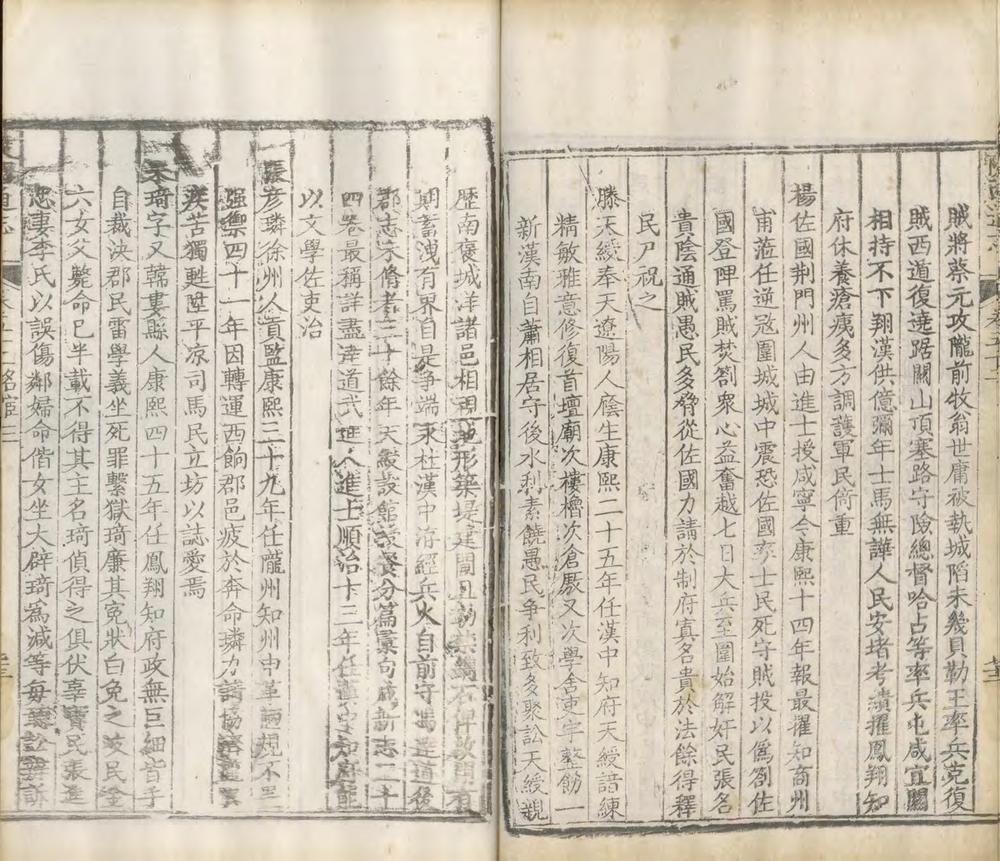 賊將蔡元攻隴前牧翁世庸被執城陷未幾貝勒王率兵克復
賊西道復遶踞關山頂塞路守險總督哈占等率兵屯咸宜關
相持不下翔漢供億彌年士馬無譁人民安堵考績擢鳳翔知
府休養瘡痍多方調護軍民倚重
楊佐國荆門州人由進士授咸寧令康熙十四年報最擢知商州
甫蒞任逆寇圍城城中震恐佐國率士民死守賊投以僞劄佐
國登陴罵賊焚劄衆心益奮越七日大兵至圍始解奸民張名
貴陰通賊愚民多脅從佐國力請於制府寘名貴於法餘得釋
民尸祝之
滕天綬奉天遼陽人廕生康熙二十五年任漢中知府天綬諳練
精敏雅意修復首壇廟次樓櫓次倉厫又次學舍凍牢整飭一
新漢南自蕭相居守後水利素饒愚民争利致多聚訟天綬親
歷南褒城洋諸邑相視地形築堤建閘丑
期蓄洩有界自是争端永杜漢中府經兵火自前守馮達道後
郡志不脩者三十餘年天綬設館授餐分篇彙句成新志二十
四卷最稱詳盡
以文學佐吏治
張彦璘徐州人貢監康熙三十九年任隴州知州申革陋規不畏
强禦四十一年因轉運西餉郡邑疲於奔命璘力請協濟
疾苦獨甦陞平凉司馬民立坊以誌愛焉
朱琦字又韓婁縣人康熙四十五年任鳳翔知府政無巨細皆手
自裁決郡民雷學義坐死罪繫獄琦廉其寃狀白免之岐民
六女父斃命已半載不得其主名琦偵得之俱伏辜寶民張進
忠妻李氏以誤傷鄰婦命偕女坐大辟琦爲減等毋